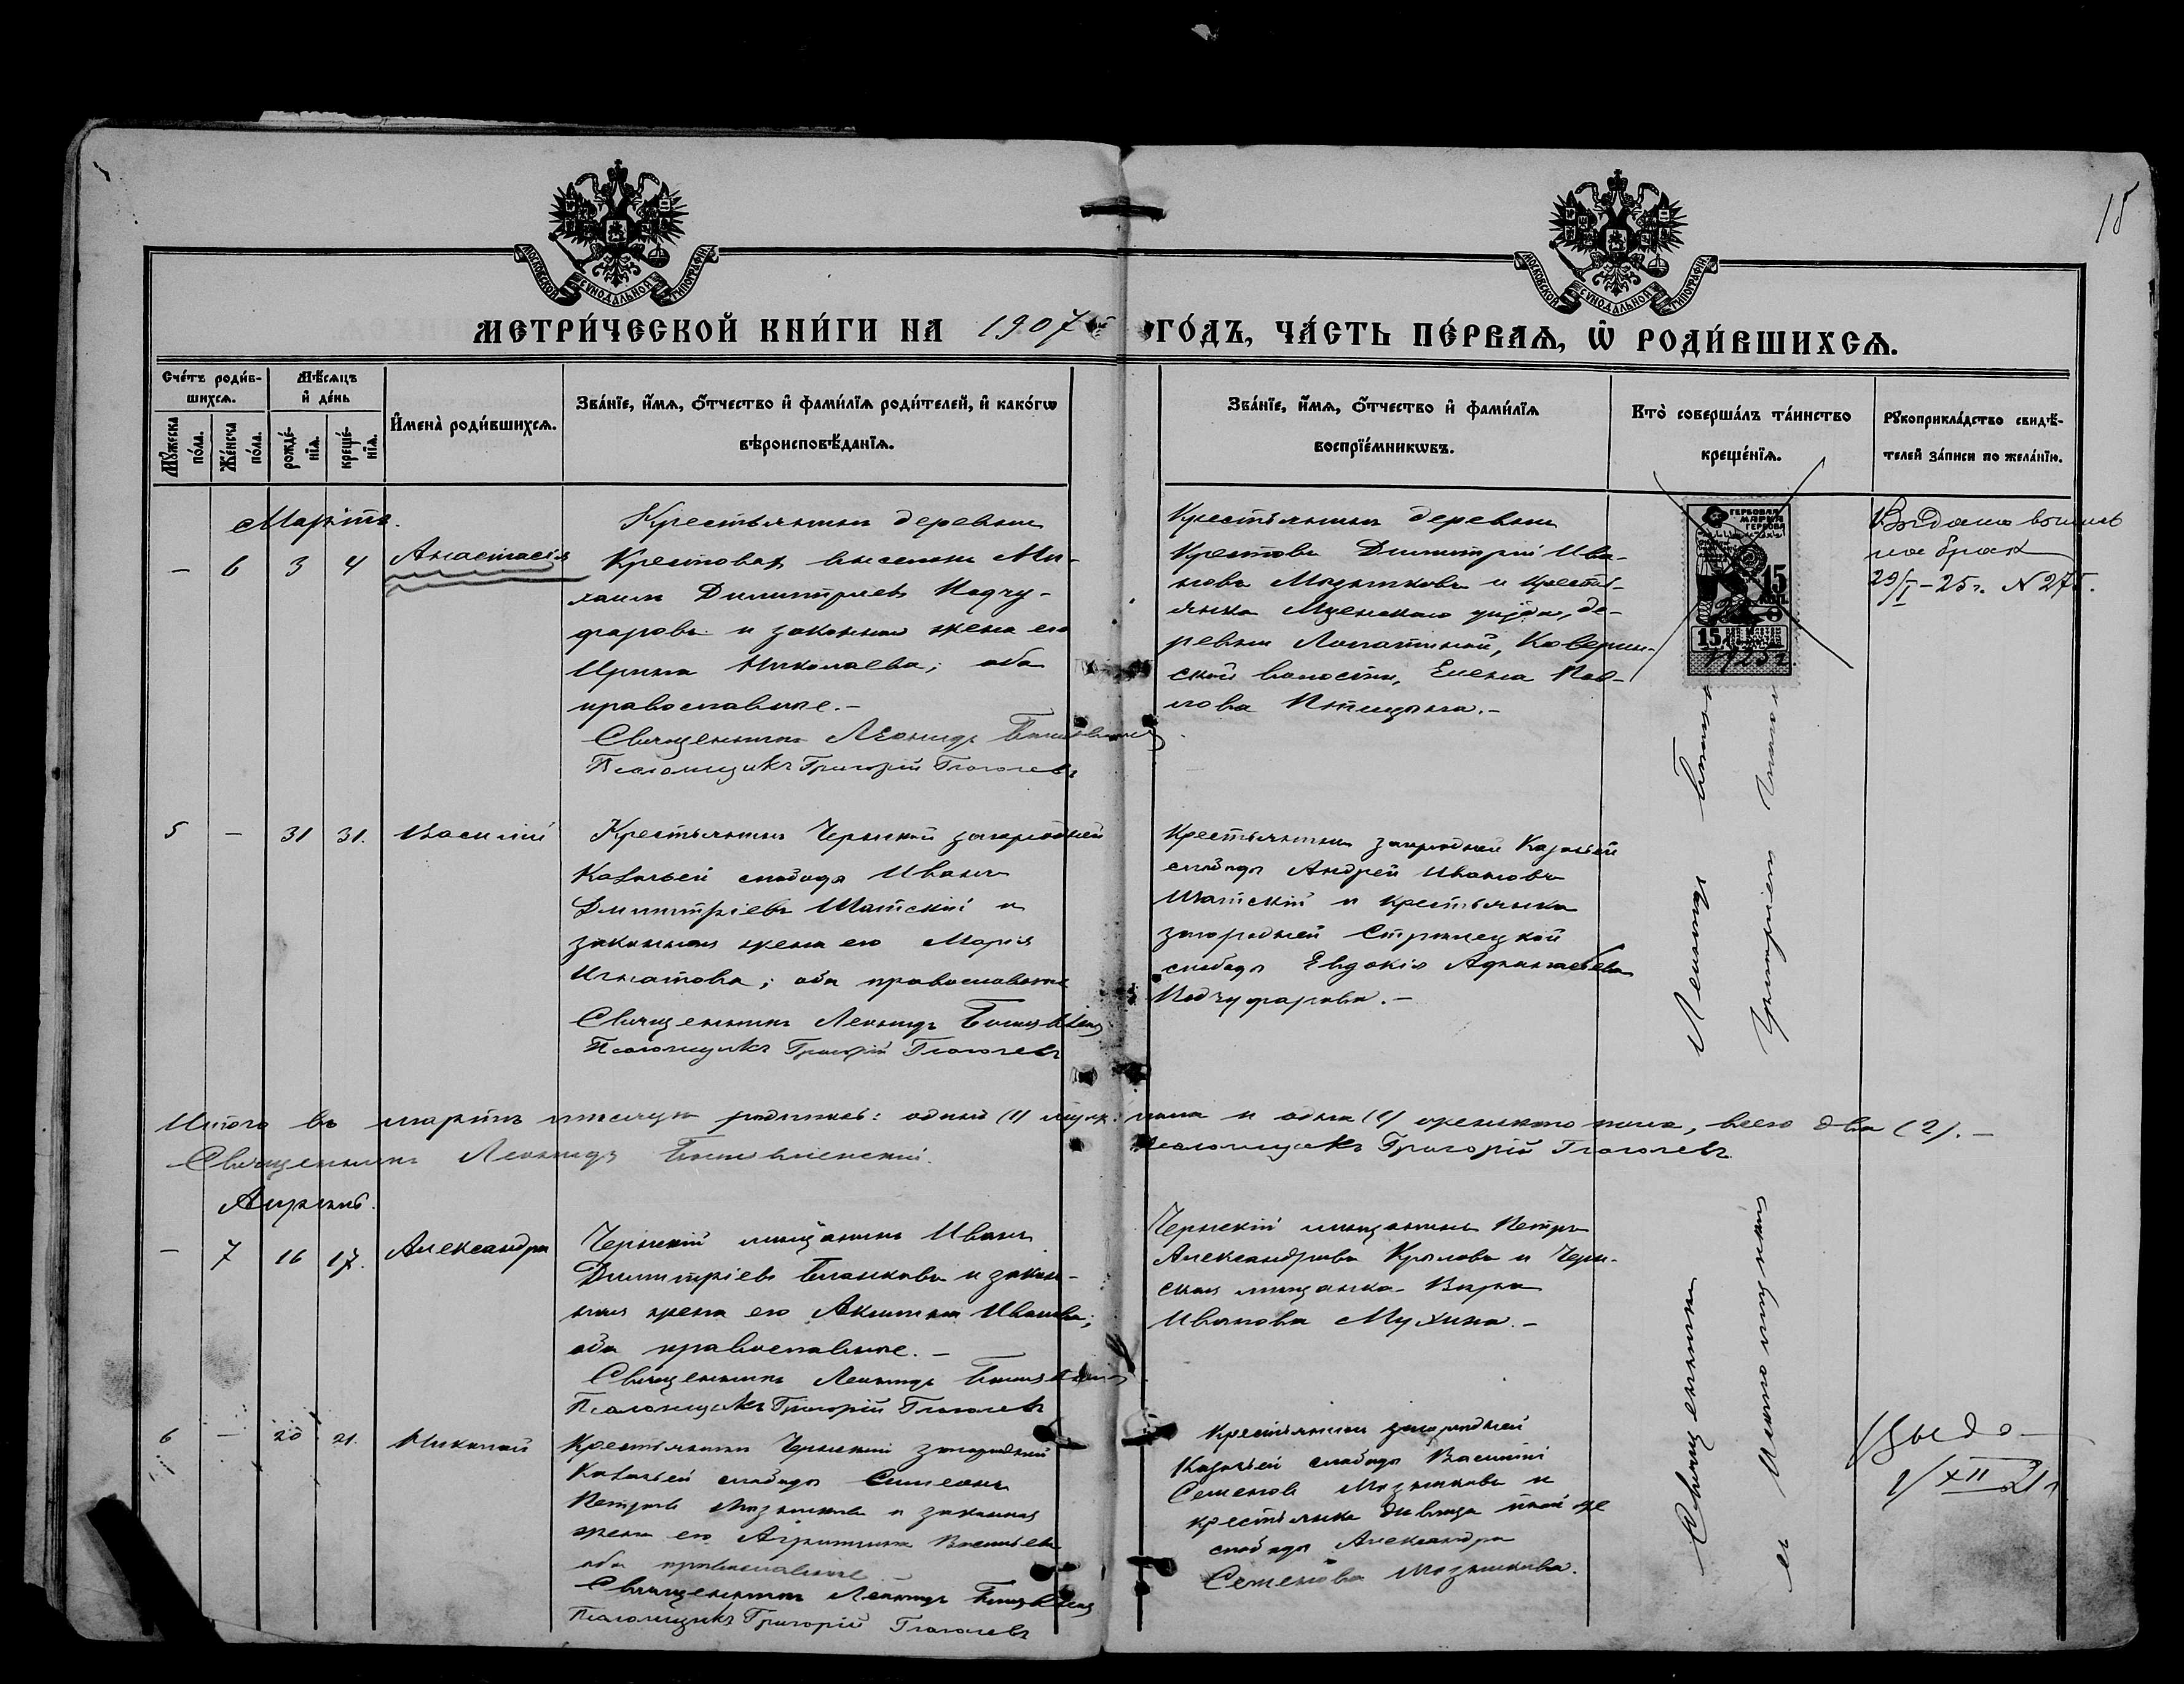 18
МОСКОВСКОЙ СѴНОДАЛЬНОЙ ТИПОГРАФІИ
МОСКОВСКОЙ СѴНОДАЛЬНОЙ ТИПОГРАФІИ
МЕТРИ́ЧЕСКОЙ КНИ́ГИ НА 1907й ГО́ДЪ, ЧА́СТЬ ПЕ́РВАѦ, Ѡ҆ РОДИ́ВШИХСѦ.
Сче́тъ роди́в-
шихсѧ.
Мѣ́сѧцъ
и҆ де́нь
Мꙋ́жеска по́ла.
Же́нска по́ла.
рожде́-
нїѧ.
креще́-
нїѧ.
И҆мена̀ роди́вшихсѧ.
Зва́нїе, и҆́мѧ, ѻ҆́тчество и҆ фами́лїѧ роди́телей, и҆ како́гѡ
вѣроисповѣ́данїѧ.
Зва́нїе, и҆́мѧ, ѻ҆́тчество и҆ фами́лїѧ
воспрїе́мникѡвъ.
Кто̀ соверша́лъ та́инство
креще́нїѧ.
Рꙋкоприкла́дство свидѣ́-
телей за́писи по жела́нїю.
Мартъ.
— 6 3 4 Анастасія
Крестьянинъ деревни
Крестовая выселокъ Ми-
хаилъ Димитріевъ Подчу-
фаровъ и законная жена его
Ирина Николаева; оба
православные.–
Священникъ Леонидъ
Псаломщикъ Григорій Глаголевъ
Крестьянинъ деревни
Крестовы Димитрій Ива-
новъ Мозжиковъ и кресть-
янка Мценскаго уѣзда, де-
ревни
ской волости, Елена Пав-
лова Птицына.–
ГЕРБОВАЯ
МАРКА
15
КОП.
15
1925 г.
Выдана выпись
на бракъ
29/I – 25 г. N 275.
5 — 31 31. Василій
Крестьянинъ Чернской загородней
Казачьей слободы Иванъ
Димитріевъ Шатскій и
законная жена его Марія
Игнатова; оба православные
Священникъ Леонидъ
Псаломщикъ Григорій Глаголевъ
Крестьянинъ загородней Казачьей
слободы Андрей Ивановъ
Шатскій и крестьянка
загородней Стрѣлецкой
слободы Евдокія
Подчуфарова.–
Итого въ мартѣ мѣсяцѣ родилось: одинъ (1) муж. пола и одна (1) женскаго пола, всего два (2).–
Священникъ Леонидъ
Псаломщикъ Григорій Глаголевъ
Апрѣль.
— 7 16 17. Александра
Чернскій мѣщанинъ Иванъ
Димитріевъ Бланковъ и закон-
ная жена его Акилина Иванова;
оба православные.–
Священникъ Леонидъ
Псаломщикъ Григорій Глаголевъ
Чернскій мѣщанинъ Петръ
Александровъ Крыловъ и Черн-
ская мѣщанка Вѣра
Иванова Мухина.–
6 — 20 21. Николай
Крестьянинъ Чернской загородней
Казачьей слободы Симеонъ
Петровъ Мозжиковъ и законная
жена его Агриппина Васильева
оба православные
Священникъ Леонидъ
Псаломщикъ Григорій Глаголевъ
Крестьянинъ загородней
Казачьей слободы Василій
Семеновъ Мозжиковъ и
крестьянка дѣвица той же
слободы Александра
Семенова Мозжикова.
Священникъ Леонидъ
и псаломщикъ Григорій
Выдо–
1/XII 21 г